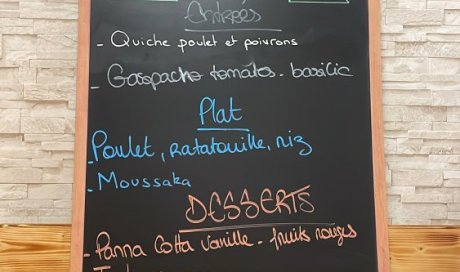 Entrées
- Quiche poulet et poivrons
- Gaspacho tomates - basilic
Plat
- Poulet, Ratatouille, riz
- Moussaka
DESSERTS
- Panna Cotta vanille - fruits rouges